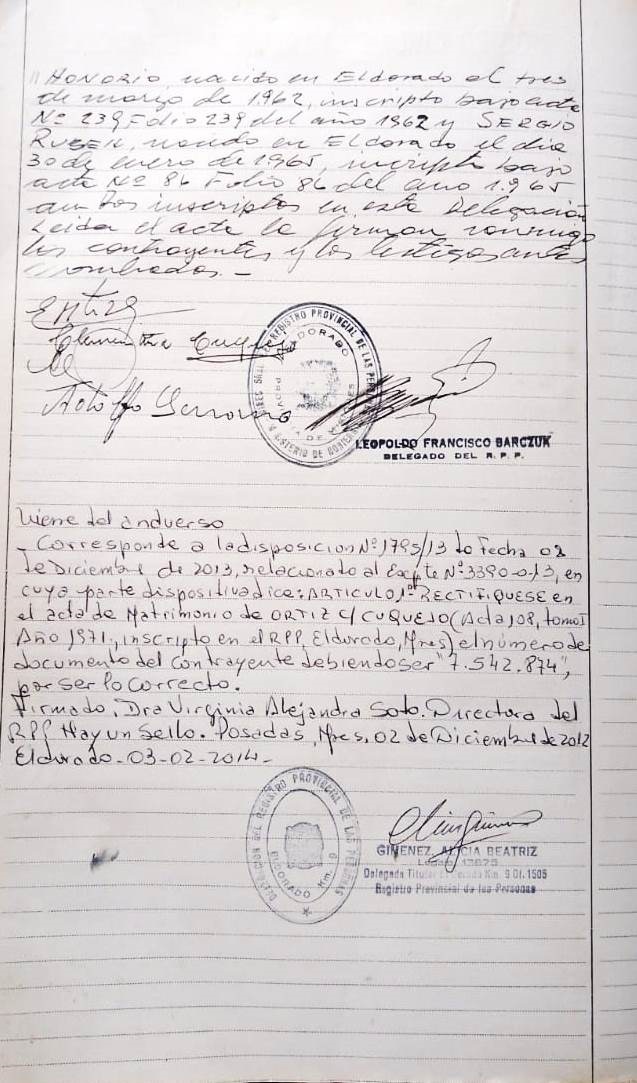 HONORIO, nacido en Eldorado el tres
de março de 1.962, inscripto bajo acta
Nº 239 Folio 239 del año 1962 y SERGIO
RUBEN, nacido en Eldorado el dia
30 de enero de 1965, incripto bajo
acta Nº 86 Folio 86 del año 1.965
ambos inscriptos en esta Delegación
Leida el acta la firman conmigo
los contrayentes y los testigos antes
nombrados. -
Ortiz
Clementina Cuquejo
Adolfo
REGISTRO PROVINCIAL DE LAS PERSONAS
ELDORADO
LEOPOLDO FRANCISCO BARCZUK
DELEGADO DEL R. P. P.
Viene del anduverso
- Corresponde a la disposicion Nº 1795/13 do Fecha 02
de Diciembre de 2013, relacionato al Expte Nº 3390-0-13, en
cuya parte dispositiva dice: ARTICULO 1º RECTIFIQUESE en
el acta de Matrimonio de ORTIZ C/ CUQUEJO (Acta 108, tomo I
Año 1971, inscripto en el RPP, Eldorado, Mnes) el número de
documento del Contrayente debiendo ser "7.542.874",
por ser lo correcto.
Firmado, Dra Virginia Alejandra Soto. Directora del
RPP Hay un Sello. Posadas, Mnes, 02 de Diciembre de 2012
Eldorado - 03-02-2014 -
DIRECCION DEL REGISTRO PROVINCIAL DE LAS PERSONAS
ELDORADO Km. 9
GIMENEZ, ALICIA BEATRIZ
Legajo 13675
Delegada Titular Eldorado Km. 9 Of. 1505
Registro Provincial de las Personas